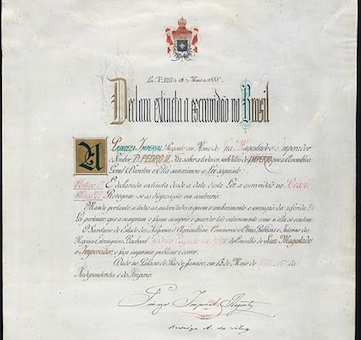 Declara extincta a escravidão no Brasil
A Princeza Imperial Regente em Nome de Sua Magestade o Imperador
o Senhor D. PEDRO II, Faz saber a todos os subditos do IMPERIO que a Assembléa
Geral e Ella sanccionou a Lei seguinte:
Artigo 1º É declarada extincta desde a data desta Lei a escravidão no Brazil
Artigo 2º Revogam-se as disposições em contrario
Manda portanto a todas as autoridades a quem o conhecimento e execução da referida
Lei pertencer, que a cumpram e façam cumprir e guardar tão inteiramente como n'ella se contém
O Secretario de Estado dos Negocios d'Agricultura Commercio e Obras Publicas e Interino dos
Negocios Estrangeiros Bacharel do Conselho de Sua Magestade
o Imperador, o faça imprimir publicar e correr
Dado no Palacio do Rio de Janeiro, em 13 de Maio de
Independencia e do Imperio
Princeza Imperial Regente